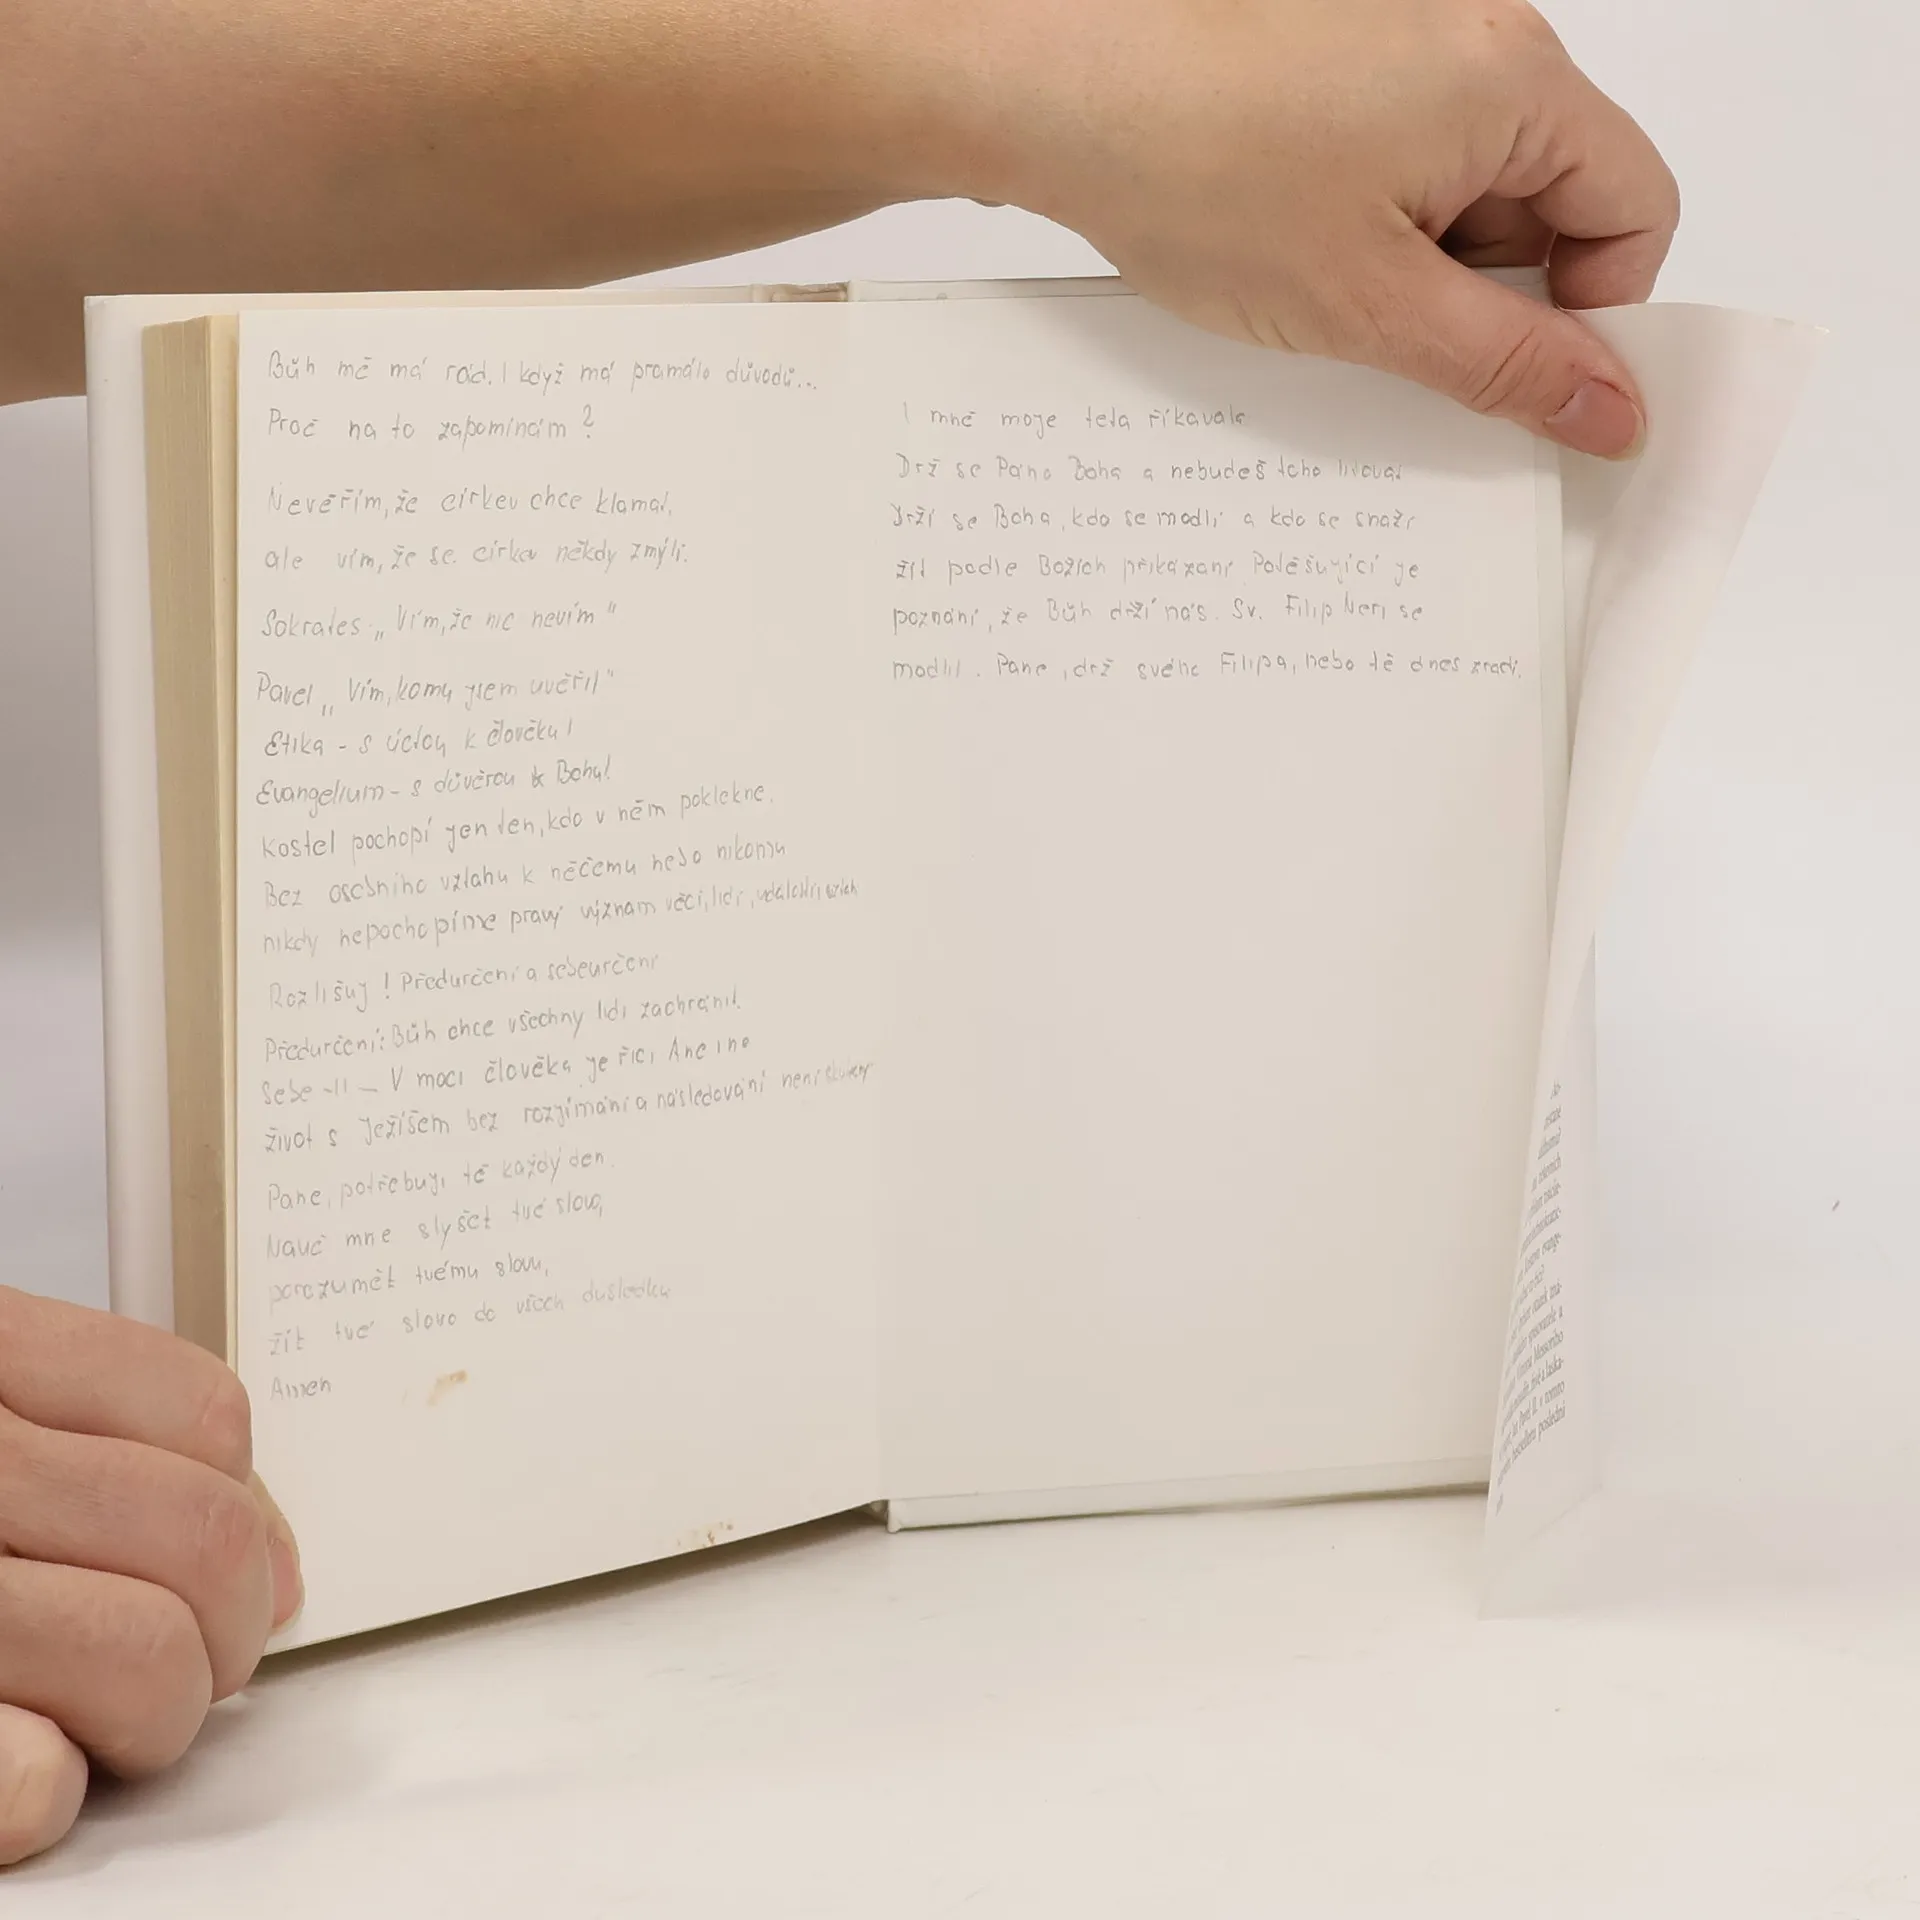 Bůh mě má rád. I když má pramálo důvodů...
Proč na to zapomínám?
Nevěřím, že církev chce klamat,
ale vím, že se církev někdy zmýlí.
Sokrates: „Vím, že nic nevím"
Pavel „Vím, komu jsem uvěřil"
Etika - s úctou k člověku!
Evangelium - s důvěrou k Bohu!
Kostel pochopí jen ten, kdo v něm poklekne.
Bez osobního vztahu k něčemu nebo nikomu
nikdy nepochopíme pravý význam věcí, lidí, událostí, vztah
Rozlišuj! Předurčení a sebeurčení
Předurčení: Bůh chce všechny lidi zachránit.
Sebe -11- V moci člověka je říci Ano i ne
Život s Ježíšem bez rozjímání a následování není skutečný
Pane, potřebuji tě každý den.
Nauč mne slyšet tvé slovo,
porozumět tvému slovu,
žít tvé slovo do všech důsledků
Amen
I mně moje teta říkávala
Drž se Pána Boha a nebudeš toho litovat
Drží se Boha, kdo se modlí a kdo se snaží
žít podle Božích přikázání Potěšující je
poznání, že Bůh drží nás. Sv. Filip Neri se
modlil. Pane, drž svého Filipa, nebo tě dnes zradí.